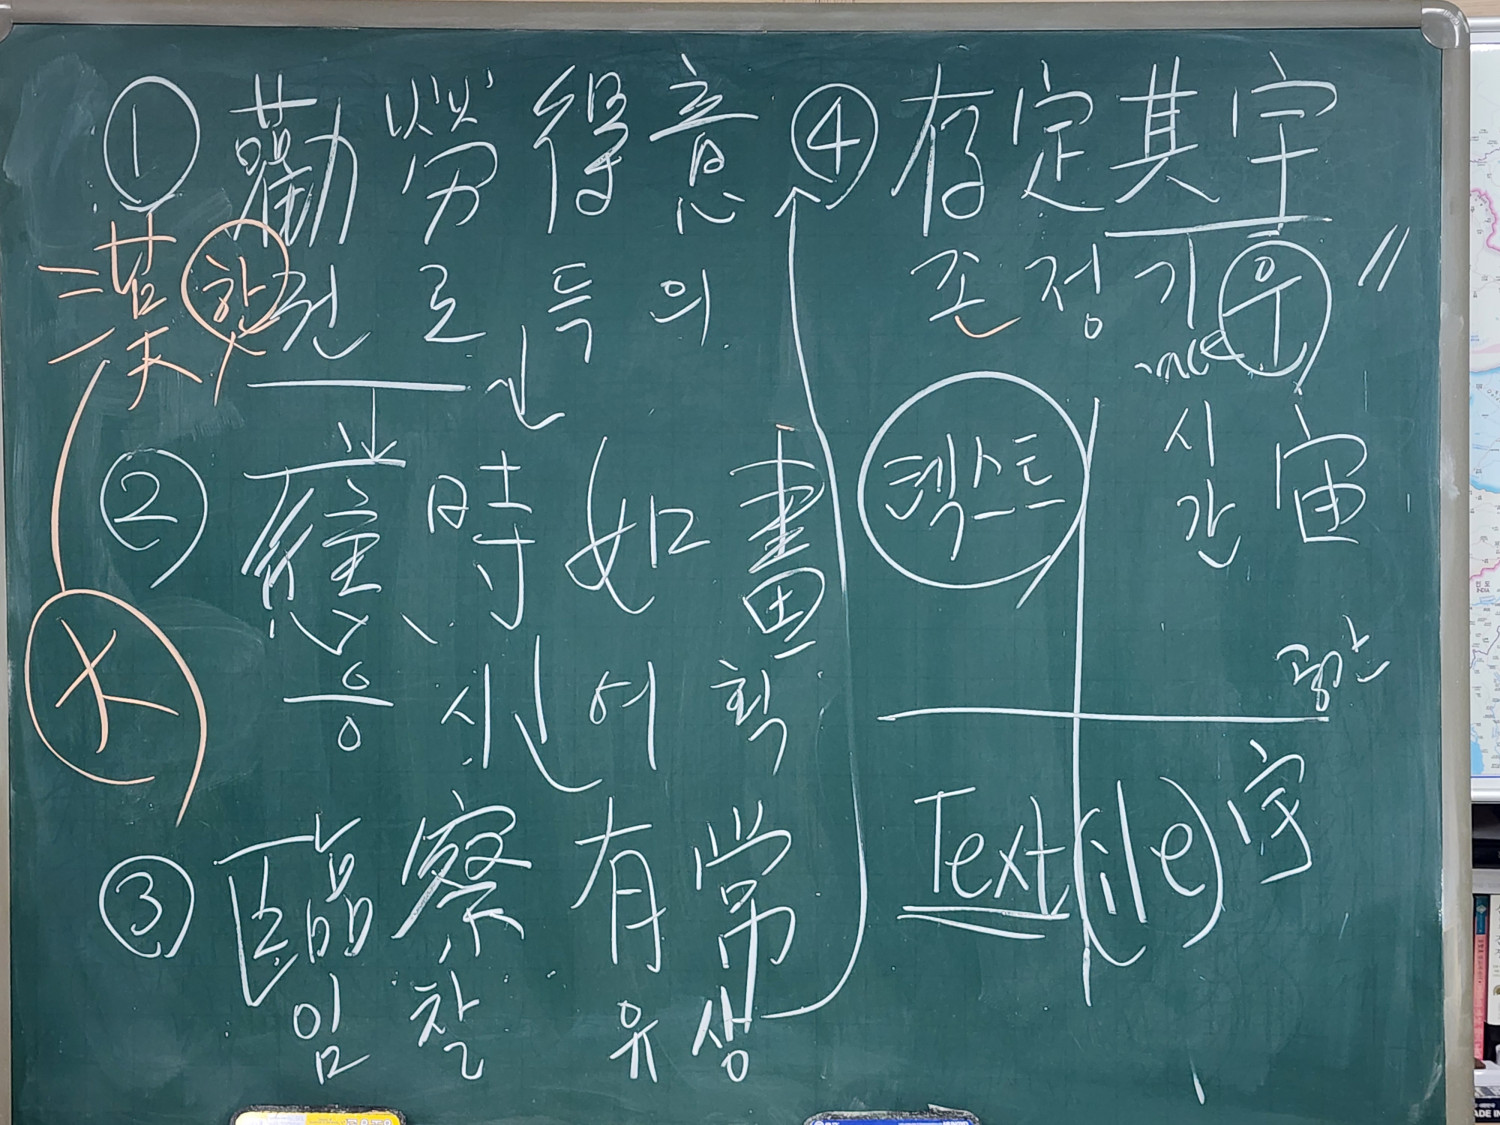 ① 勸勞得意
권로득의
漢 한
大
② 應時如畫
응시여획
③ 臨察有常
임찰유상
④ 存定其宇
존정기우 〃
텍스트
시간 宙
공간
Text(ile) 宇